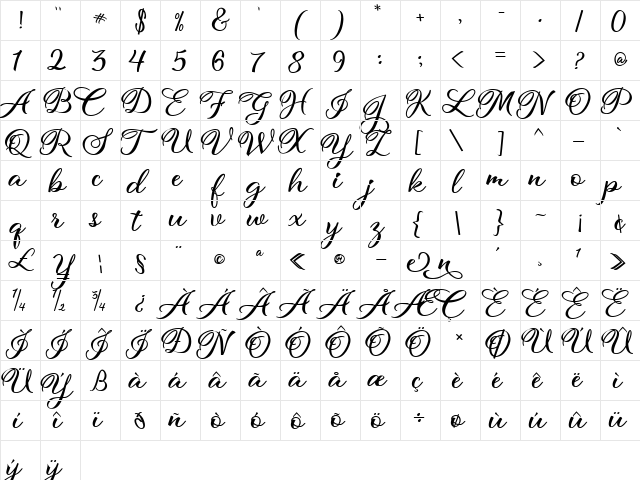 ! " # $ % & ' ( ) * + , - . / 0
1 2 3 4 5 6 7 8 9 : ; < = > ? @
A B C D E F G H I J K L M N O P
Q R S T U V W X Y Z [ \ ] ^ _ `
a b c d e f g h i j k l m n o p
q r s t u v w x y z { | } ~ ¡ ¢
£ ¥ ¦ § ¨ © ª « ® ¯ e n ´ ¸ ¹ »
¼ ½ ¾ ¿ À Á Â Ã Ä Å Æ Ç È É Ê Ë
Ì Í Î Ï Ð Ñ Ò Ó Ô Õ Ö × Ø Ù Ú Û
Ü Ý ß à á â ã ä å æ ç è é ê ë ì
í î ï ð ñ ò ó ô õ ö ÷ ø ù ú û ü
ý ÿ